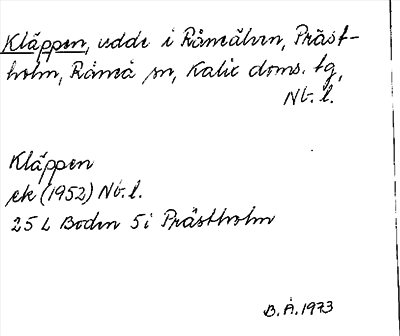 Kläppen, udde i Råneälven, Präst-
holm, Råneå sn, Kalix doms. tg,
Nb. l.
Kläppen
ek (1952) Nb. l.
25 L Boden 5i Prästholm
B. Å. 1973